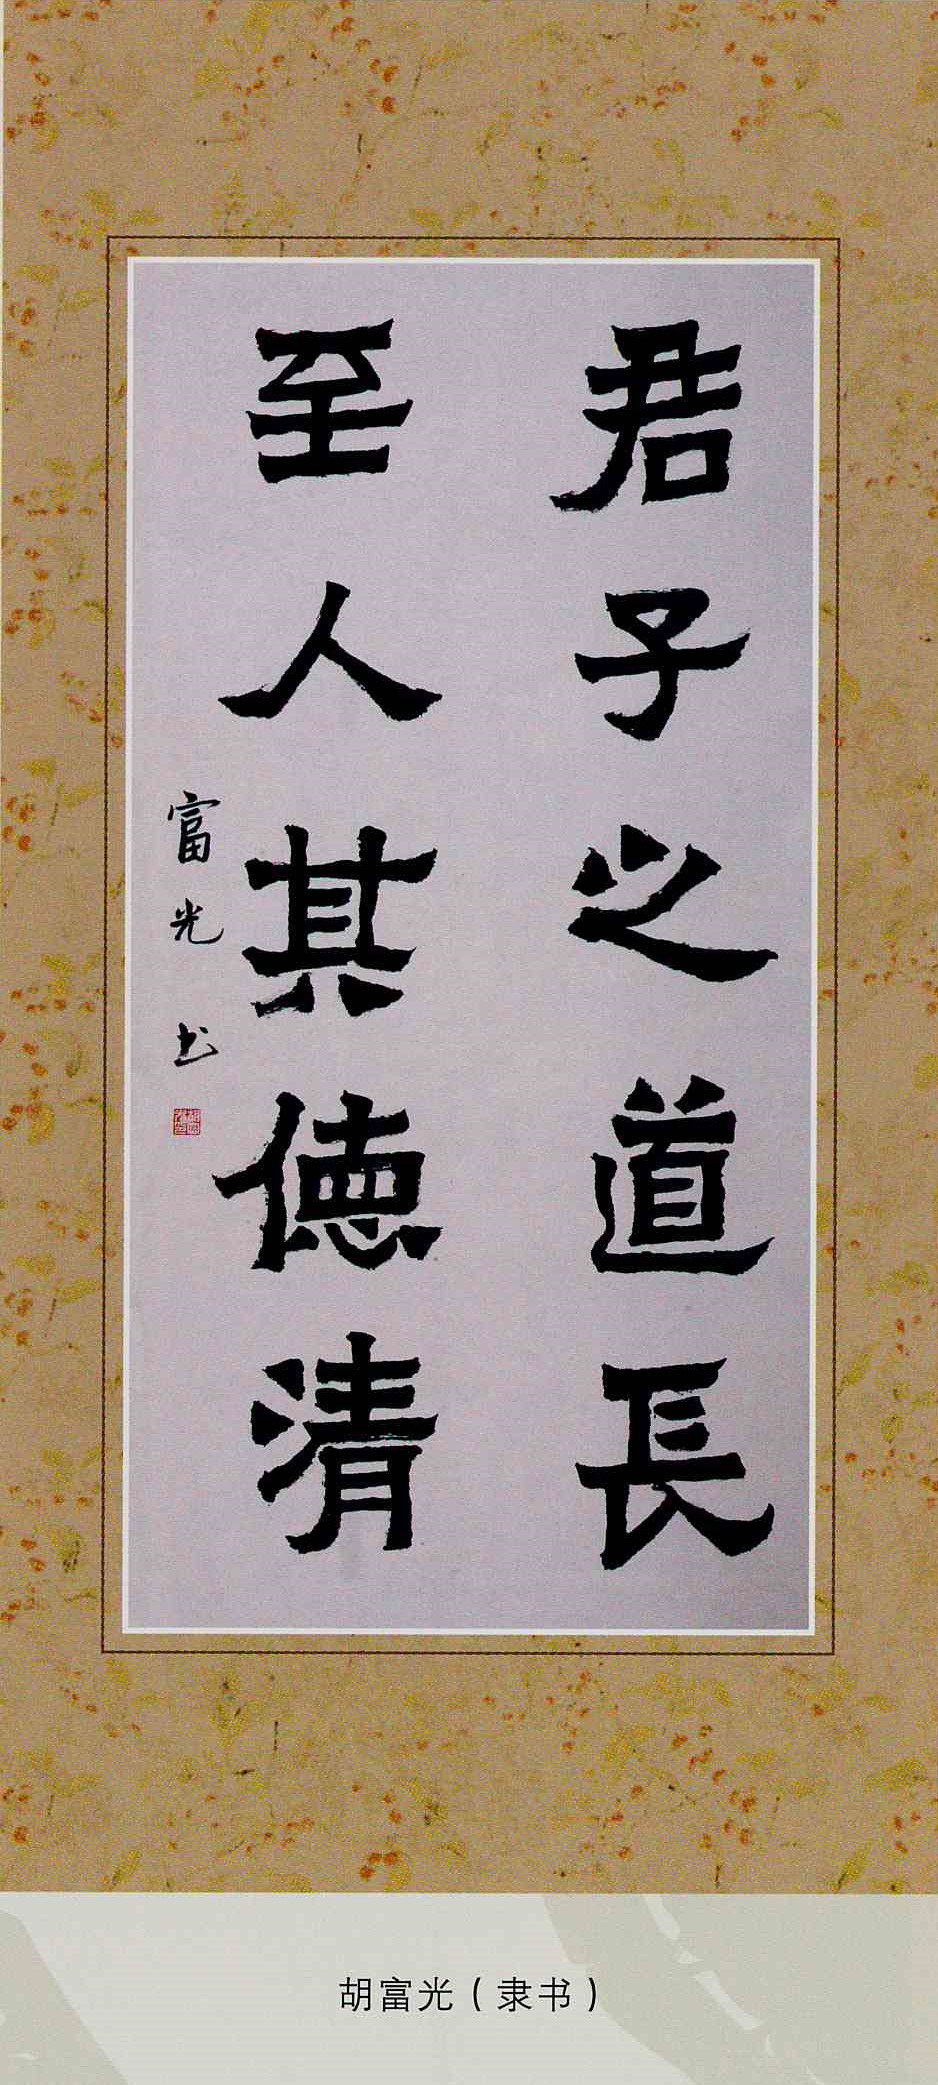 君子之道長
至人其德清
富光书
胡富光（隶书）